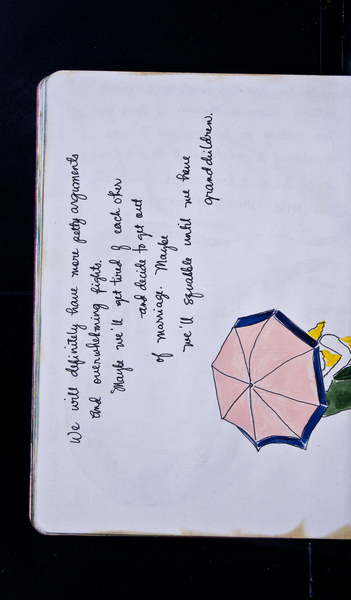 We will definitely have more petty arguments
and overwhelming fights.
Maybe we'll get tired of each other
and decide to get out
of marriage. Maybe
we'll squabble until we have
grandchildren.